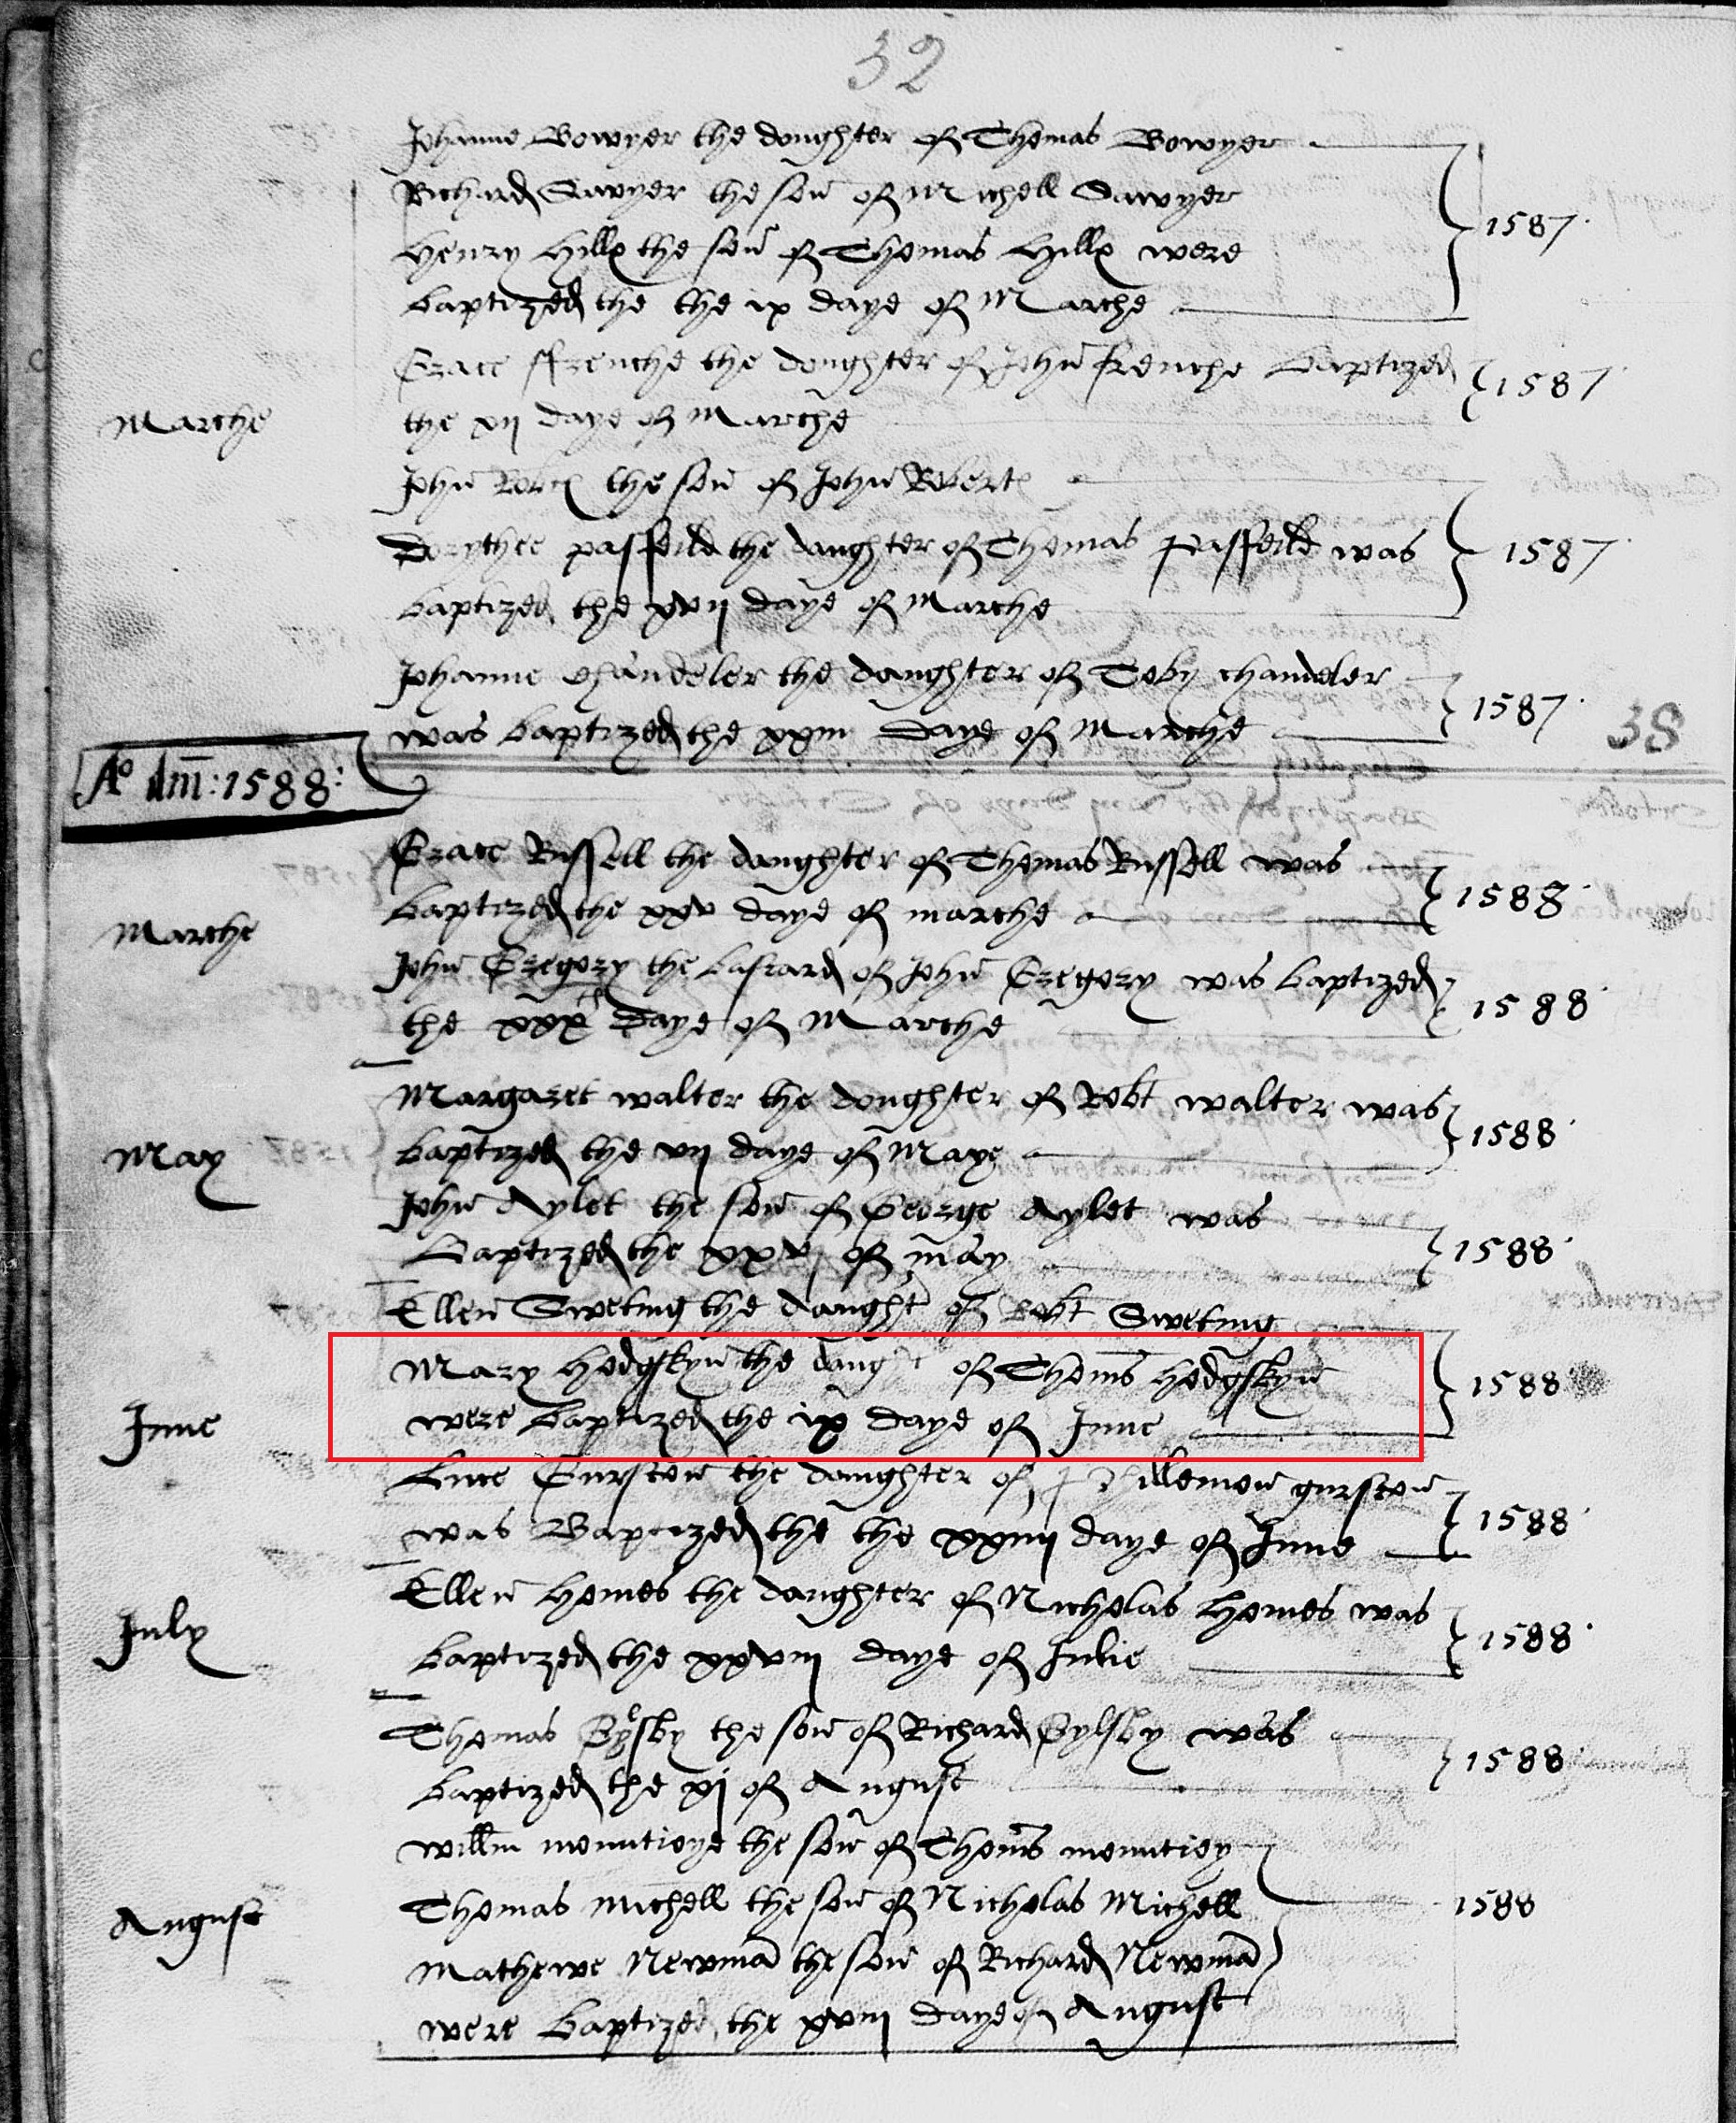 32
Johanne Bowyer the doughter of Thomas Bowyer
Richard Sawyer the son of Michell Sawyer
Henry Hills the son of Thomas Hills were
baptized the the ix daye of Marche
1587
Grace ffrenche the doughter of John frenche baptized
the xij daye of Marche
1587
Marche
John Robts the son of John Roberts
Dorythee passfeild the daughter of Thomas passfeild was
baptized the xvij daye of Marche
1587
Johanne Chandeler the daughter of Toby chandeler
was baptized the daye of Marche
1587
38
Ao dm̄: 1588:
Grace Russell the daughter of Thomas Russell was
baptized the xxv daye of marche
1588
Marche
John Gregory the bastard of John Gregory was baptized
the xxxth daye of Marche
1588
Margaret walter the doughter of Robt walter was
baptized the vij daye of Maye
1588
May
John Aylet the son of George Aylet was
Baptized the of may
1588
Ellen Sweting the daught of Robt Sweting
Mary Hodgskyn the daught of Thoms Hodgskyn
were baptized the ix daye of June
1588
June
Luce Gurston the daughter of gurston
was Baptized the the xxiiij daye of June
1588
Ellen Homes the daughter of Nicholas Homes was
baptized the xxviij daye of Julie
1588
July
Thomas the son of Richard Gylsby was
baptized the xj of August
1588
Willm mountioye the son of Thoms mountioy
Thomas Michell the son of Nicholas Michell
Mathewe Newmā the son of Richard Newmā
were baptized the xviij daye of August
1588
August